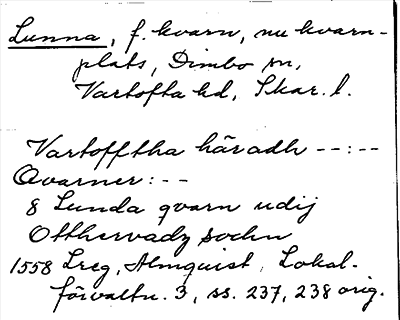 Lunna, f. kvarn, nu kvarn-
plats, Dimbo sn,
Vartofta hd, Skar. l.
Vartofftha häradh --:--
Qvarner: --
8 Lunda qvarn udij
Otthervadz sochn
1558 Lreg, Almquist, Lokal-
förvaltn. 3, ss. 237, 238 orig.